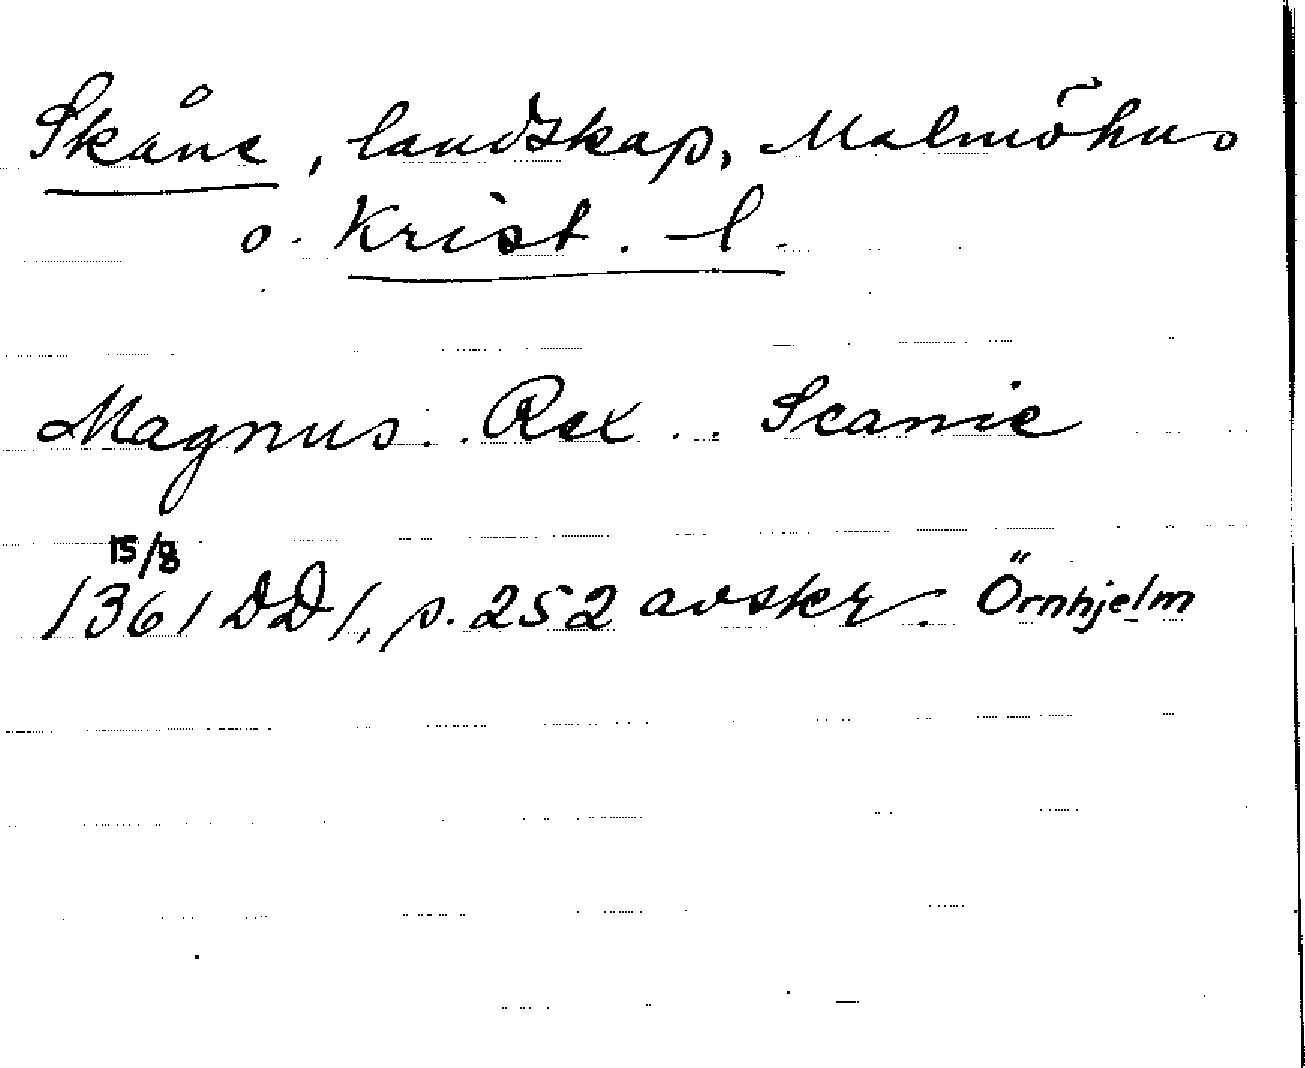 Skåne, landskap, Malmöhus
o. Krist. -l.
Magnus.. Rex... Scanie
15/8
1361 DD 1, p. 252 avskr. Örnhjelm